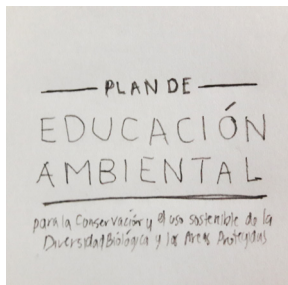 PLAN DE
EDUCACIÓN
AMBIENTAL
para la Conservación y el uso sostenible de la
Diversidad Biológica y las Areas Protegidas